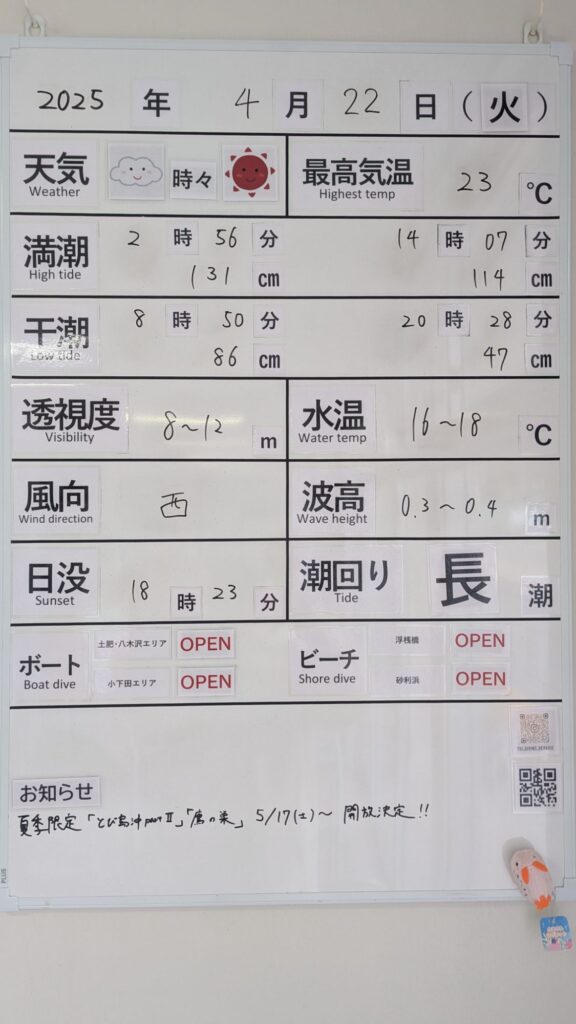 2025 年 4 月 22 日 (火)
天気 時々
Weather
最高気温 23 ℃
Highest temp
満潮 2 時 56 分 14 時 07 分
High tide 131 cm 114 cm
干潮 8 時 50 分 20 時 28 分
Low tide 86 cm 47 cm
透視度 8~12 m
Visibility
水温 16~18 ℃
Water temp
風向 西
Wind direction
波高 0.3~0.4 m
Wave height
日没 18 時 23 分
Sunset
潮回り 長 潮
Tide
ボート
Boat dive
土肥・八木沢エリア OPEN
小下田エリア OPEN
ビーチ
Shore dive
浮桟橋 OPEN
砂利浜 OPEN
お知らせ
夏季限定「とび島沖partⅡ」「鷹の巣」 5/17(土)~ 開放決定!!
PLUS